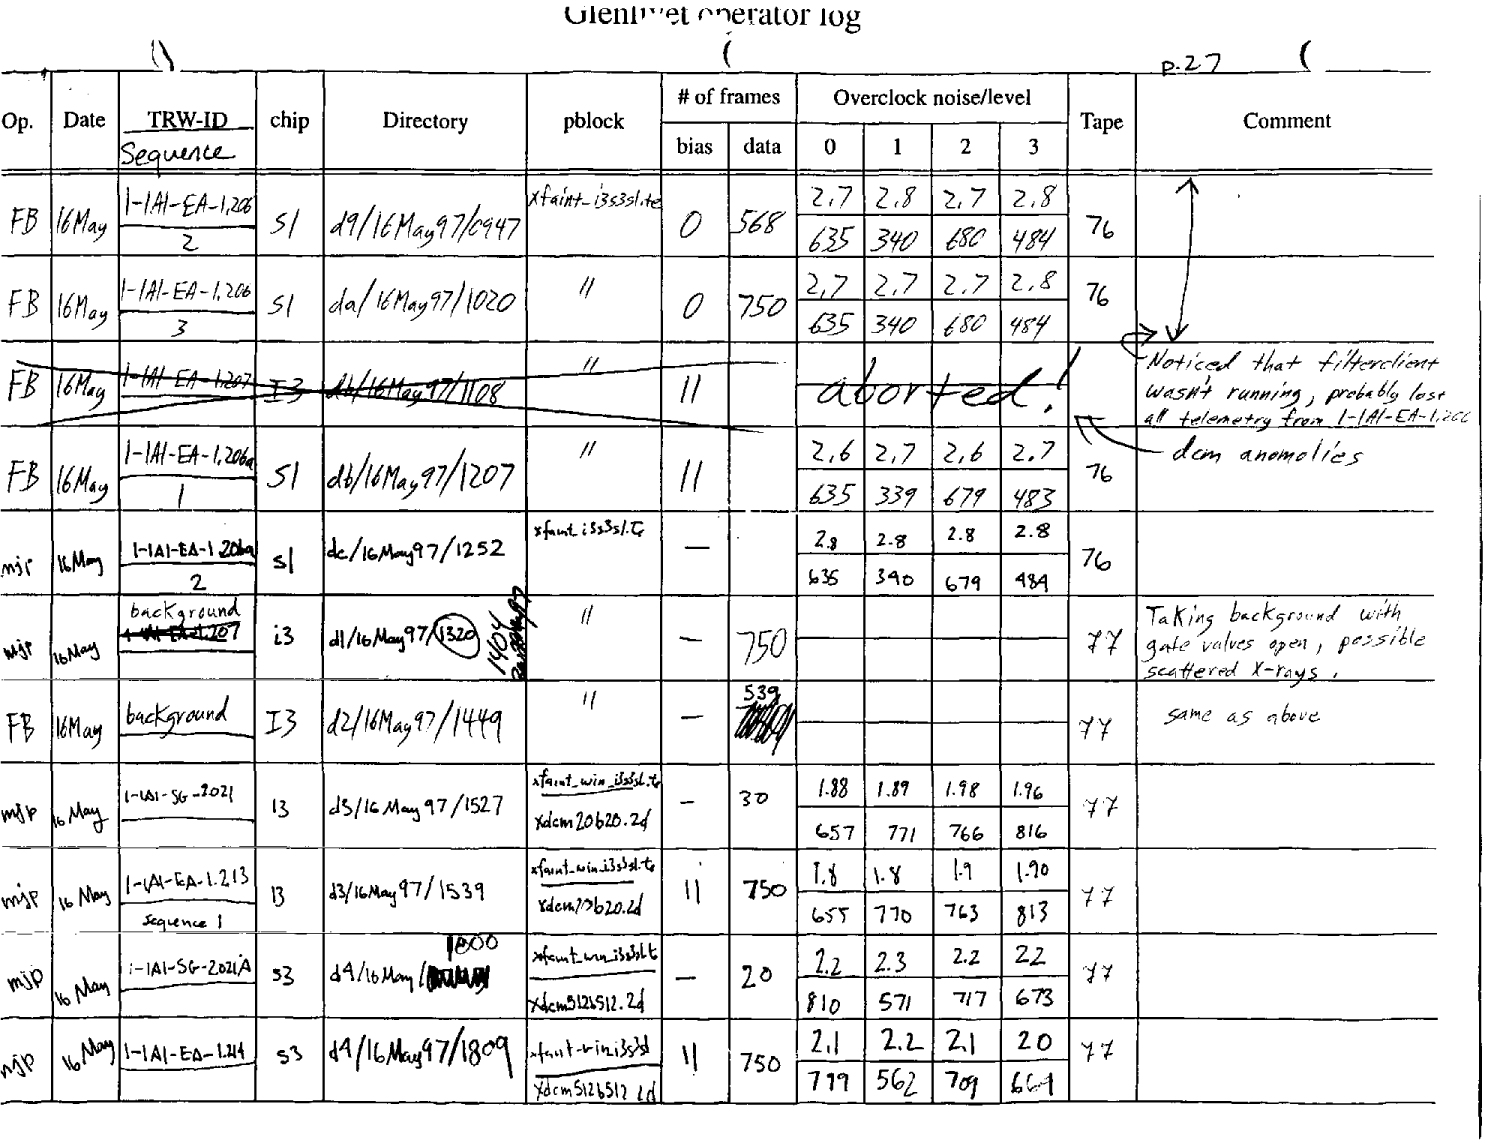 Glenlivet operator log
p.27
Op. Date TRW-ID chip Directory pblock # of frames Overclock noise/level Tape Comment
Sequence bias data 0 1 2 3
FB 16May 1-IAI-EA-1.206 S1 d9/16May97/0947 xfaint_i3s3s1.te 0 568 2.7 2.8 2.7 2.8 76
2 635 340 680 484
FB 16May 1-IAI-EA-1.206 S1 da/16May97/1020 " 0 750 2.7 2.7 2.7 2.8 76
3 635 340 680 484
FB 16May 1-IAI-EA-1.207 I3 db/16May97/1108 " 11 aborted!
Noticed that filterclient
wasn't running, probably lost
all telemetry from 1-IAI-EA-1.206
dcm anomolies
FB 16May 1-IAI-EA-1.206a S1 db/16May97/1207 " 11 2.6 2.7 2.6 2.7 76
1 635 339 679 483
mjp 16May 1-IAI-EA-1.206a S1 dc/16May97/1252 xfaint_i3s3s1.te — 2.8 2.8 2.8 2.8 76
2 635 340 679 484
mjp 16May background i3 d1/16May97/1320 1404 " — 750 77
1-IAI-EA-1.207
Taking background with
gate valves open, possible
scattered X-rays.
FB 16May background I3 d2/16May97/1449 " — 539 77 same as above
mjp 16May 1-IAI-SG-2021 I3 d3/16May97/1527 xfaint_win_i3s3s1.te — 30 1.88 1.89 1.98 1.96 77
xdcm20b20.2d 657 771 766 816
mjp 16May 1-IAI-EA-1.213 I3 d3/16May97/1539 xfaint_win_i3s3s1.te 11 750 1.8 1.8 1.9 1.90 77
sequence 1 xdcm20b20.2d 655 770 763 813
mjp 16May 1-IAI-SG-2021A S3 d4/16May/1800 xfaint_win_i3s3s1.te — 20 2.2 2.3 2.2 2.2 77
xdcm512b512.2d 810 571 717 673
mjp 16May 1-IAI-EA-1.214 S3 d4/16May97/1809 11 750 2.1 2.2 2.1 2.0 77
xdcm512b512.2d 799 562 709 664